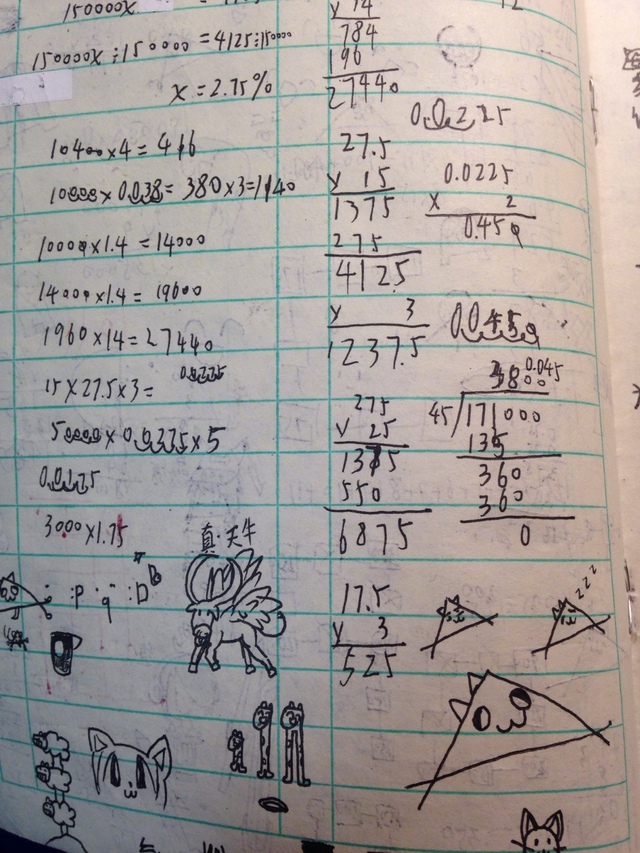 150000X
150000X÷150000=4125÷150000
X=2.75%
10400×4=416
10000×0.038=380×3=1140
10000×1.4=14000
14000×1.4=19600
1960×14=27440
15×27.5×3=
50000×0.0375×5
3000×1.75
真·天牛
:P
:D
× 14
784
196
27440
27.5
× 15
1375
275
4125
× 3
1237.5
275
× 25
1375
550
6875
17.5
× 3
525
0.0225
0.0225
× 2
0.450
0.0450
0.045
3800
45 171000
135
360
360
0
zzz